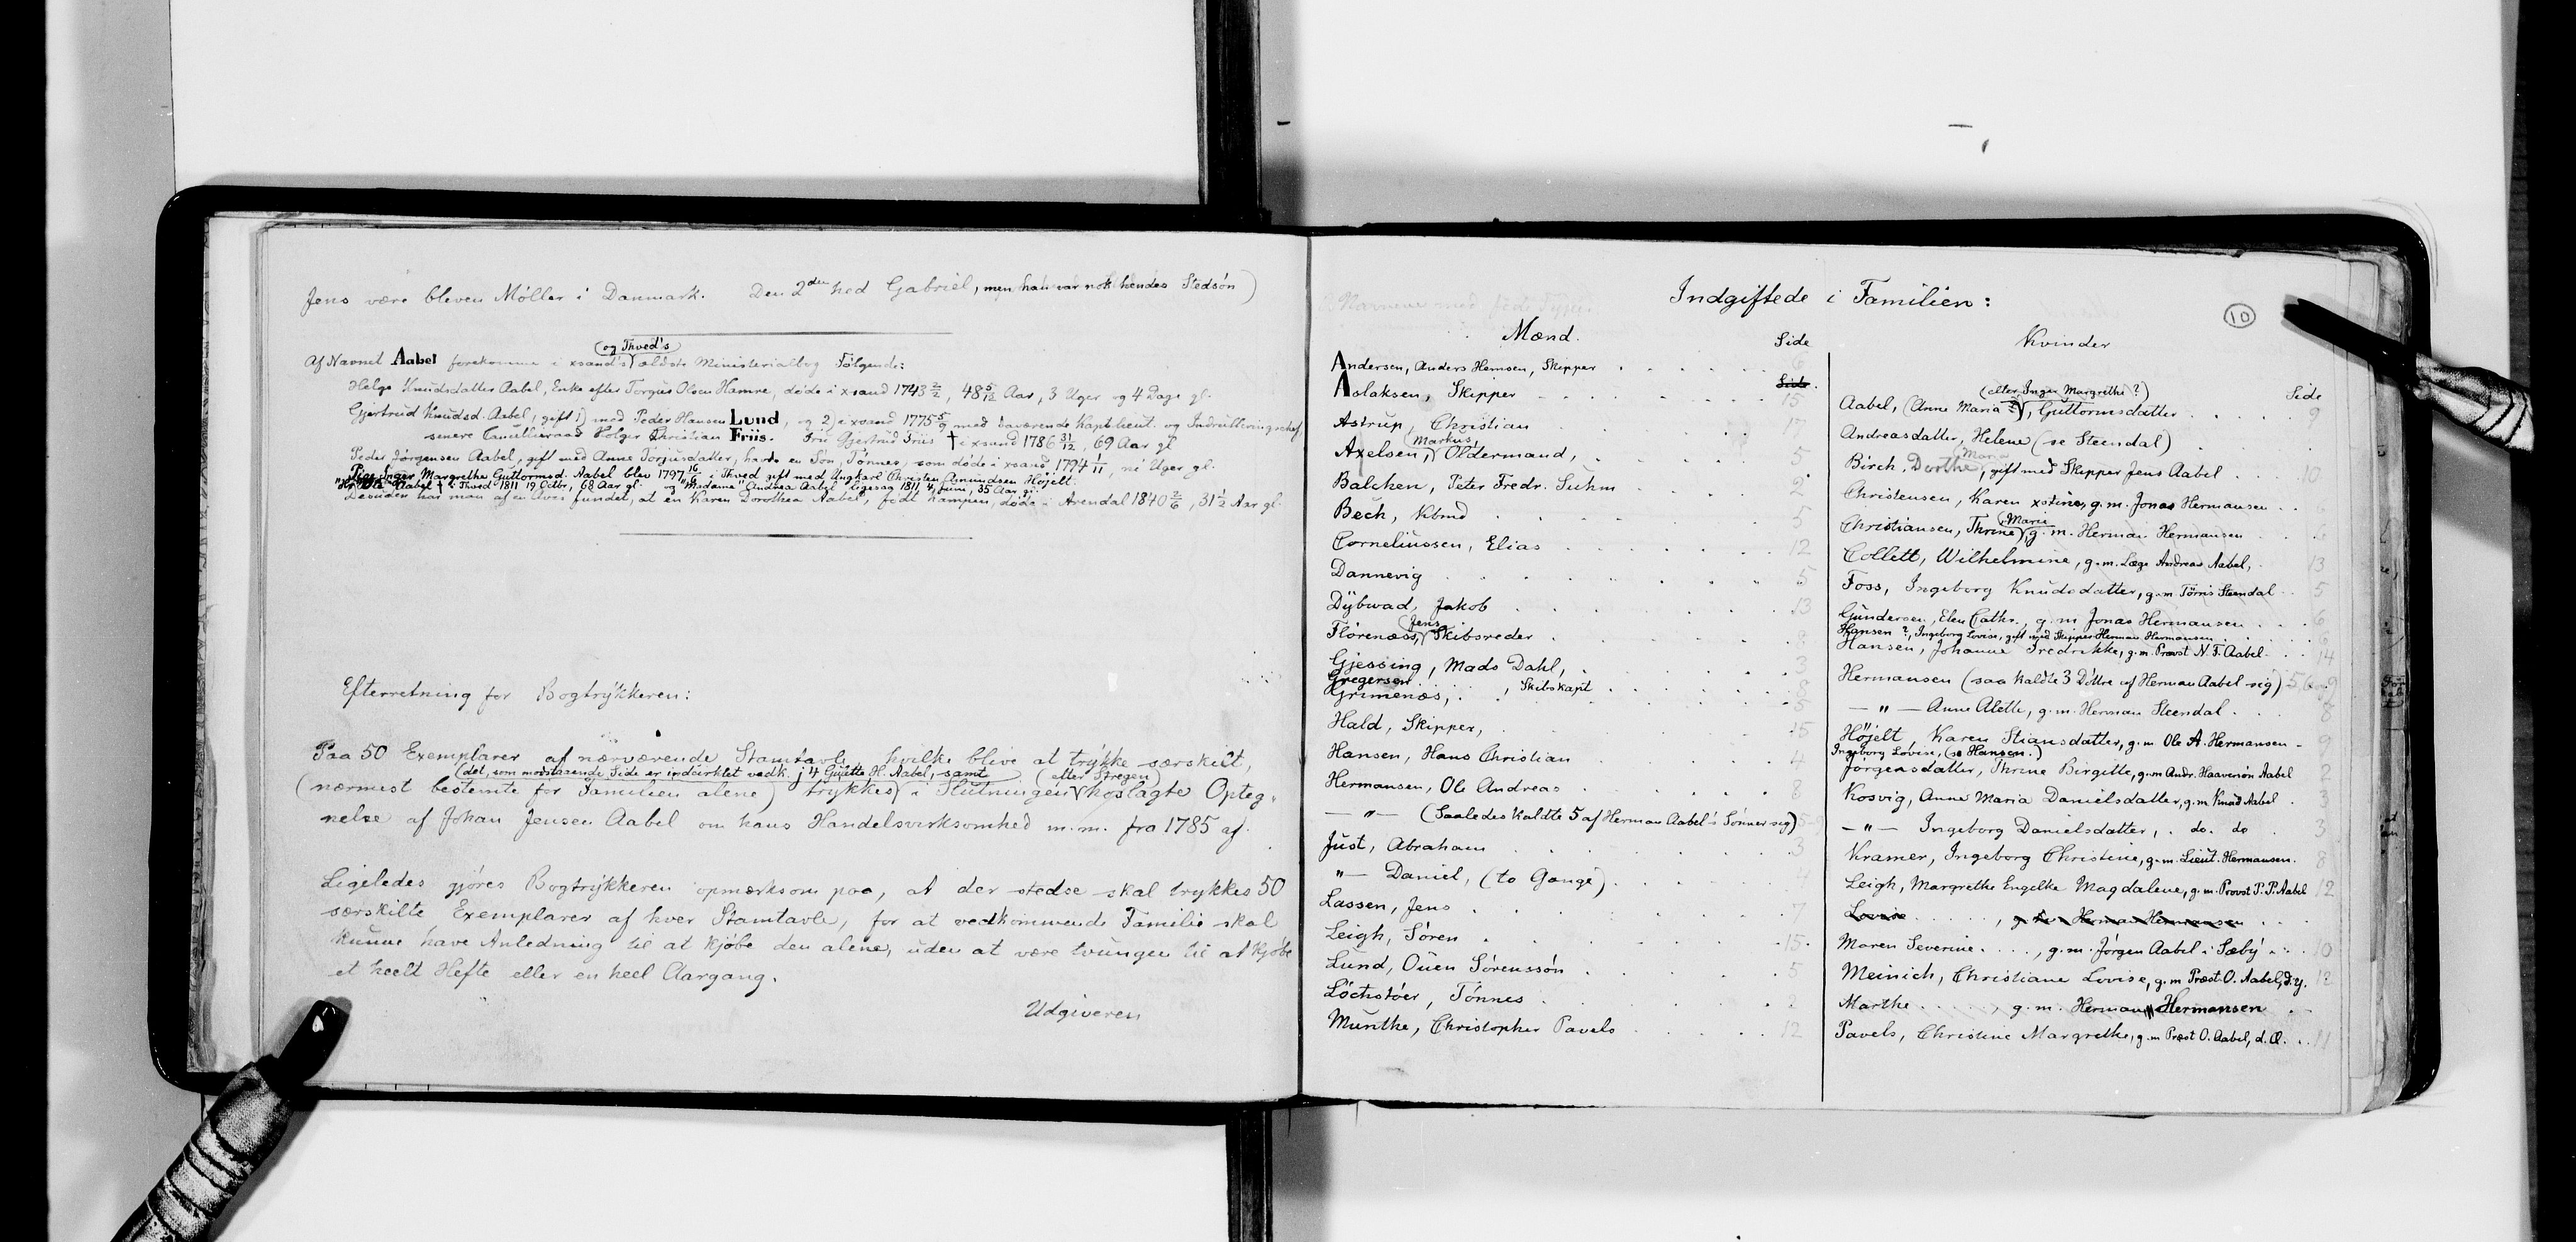 Jens være bleven Møller i Danmark. Den 2den hed Gabriel, men han var nok hendes Stedsön)
(og Thved's)
Af Navnet Aabel forekomme i xsand's ældste Ministerialbog Følgende:
Helge Knudsdatter Aabel, Enke efter Torgius Olsen Hamre, døde i xsand 1743 2/2, 48 5/12 Aar, 3 Uger og 4 Dage gl.
Gjertrud Knudsd. Aabel, gift 1) med Peder Hansen Lund, og 2) i xsand 1775 5/9 med daværende Kapt.lieut. og Indrulleringschef,
senere Cancelliraad Holger Christian Friis. Fru Gjertrud Friis † i xsand 1786 31/12, 69 Aar gl
Peder Jørgensen Aabel, gift med Anne Torjusdatter, havde en Sön, Tönnes, som døde i xsand 1794 1/11, ni Uger gl.
Pige Inger Margrethe Guttormsd. Aabel blev 1797 16/ i Thved gift med Ungkarl Christen Asmundsen Höjelt.
Aabel † i Thved 1811 19 Octbr, 68 Aar gl. og "Madame" Andrea Aabel ligesaa 1811, 4 Juni, 35 Aar gl.
Desuden har man af en Avis fundet, at en Karen Dorothea Aabel, födt Kampen, døde i Arendal 1840 2/6, 31 1/2 Aar gl.
Efterretning for Bogtrykkeren:
Paa 50 Exemplarer af nærværende Stamtavle, hvilke blive at trykke særskilt,
(det, som modstaaende Side er indcirklet vedk. j 4 Gujette H. Aabel, samt (efter Stregen)
(nærmest bestemte for Familien alene) trykkes i Slutningen hoslagte Opteg-
nelse af Johan Jensen Aabel om hans Handelsvirksomhed m.m. fra 1785 af.
Ligeledes gjøres Bogtrykkeren opmærksom paa, at der stedse skal trykkes 50
særskilte Exemplarer af hver Stamtavle, for at vedkommende Familie skal
kunne have Anledning til at kjøbe den alene, uden at være tvungen til at kjøbe
et heelt Hefte eller en heel Aargang.
Udgiveren
Indgiftede i Familien:
10
Mænd. Side
Andersen, Anders Hemsen, Skipper 6
Side
Aslaksen, Skipper 15
Astrup, Christian 17
(Markus)
Axelsen, Oldermand, 5
Balchen, Peter Fredr. Suhm 2
Bech, Kbmd 5
Corneliussen, Elias 12
Dannevig 5
Dybwad, Jakob 13
(Jens)
Flörenæss, Skibsreder 8
Gjessing, Mads Dahl, 3
Gregersen, Skibskapt 8
Grimenæs, 5
Hald, Skipper, 15
Hansen, Hans Christian 4
Hermansen, Ole Andreas 8
— " — (Saaledes kaldte 5 af Herman Aabel's Sønner sig)
Just, Abraham 3
" — Daniel, (to Gange) 4
Lassen, Jens 7
Leigh, Sören 15
Lund, Ouen Sörenssön 5
Löchstöer, Tönnes 2
Munthe, Christopher Pavels 12
Kvinder
(eller Inger Margrethe ?) Side
Aabel, (Anne Maria ?), Guttormsdatter 9
Andreasdatter, Helene (se Steendal)
Maria
Birch, Dorthe, gift med Skipper Jens Aabel 10
Christensen, Karen xstine, g.m. Jonas Hermansen 6
(Marie
Christiansen, Thrine, g.m. Herman Hermansen
Collett, Wilhelmine, g.m. Læge Andreas Aabel, 13
Foss, Ingeborg Knudsdatter, g.m. Törris Steendal 5
Gundersen, Elen Cathr., g.m. Jonas Hermansen 6
Hansen ?, Ingeborg Lovise, gift med Skipper Herman Hermansen 6
Hansen, Johanne Fredrikke, g.m. Provst N. F. Aabel 14
Hermansen (saa kaldte 3 Döttre af Herman Aabel sig) 5,6 og 9
— " — Anne Alette, g.m. Herman Steendal 8
Höjelt, Karen Stiansdatter, g.m. Ole A. Hermansen 9
Ingeborg Lovise, (se Hansen.)
Jörgensdatter, Thrine Birgitte, g.m. Andr. Haaversön Aabel 2
Kosvig, Anne Maria Danielsdatter, g.m. Knud Aabel 3
— " — Ingeborg Danielsdatter, do. do 3
Kramer, Ingeborg Christine, g.m. Lieut. Hermansen. 8
Leigh, Margrethe Engelke Magdalene, g.m. Provst P. P. Aabel 12
Lovise , g.m. Herman Hermansen
Maren Severine , g.m. Jörgen Aabel i Sæby 10
Meinich, Christiane Lovise, g.m. Præst O. Aabel, d.y. 12
Marthe , g.m. Herman Hermansen
Pavels, Christine Margrethe, g.m. Præst O. Aabel, d. Æ. 11